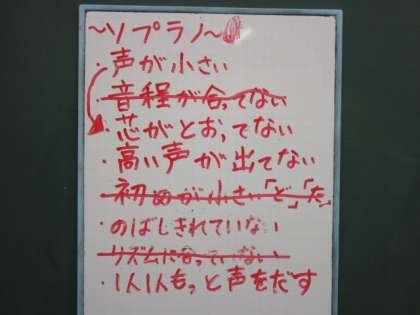 ～ソプラノ～
・声が小さい
・音程が合ってない
・芯がとおってない
・高い声が出てない
・初めが小さい「ど」「た」
・のばしきれていない
・リズムに合っていない
・1人1人もっと声をだす